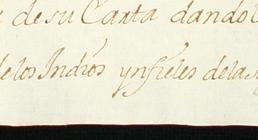 de su Carta dando
de los Indios ynfieles de la